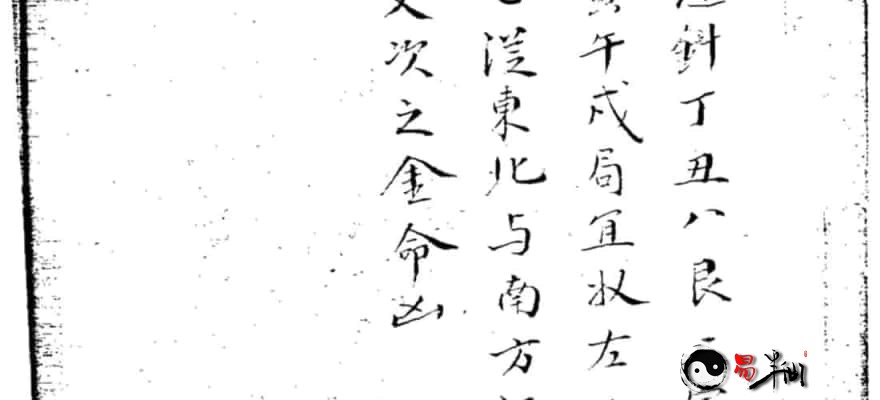 斜丁丑八艮
午戍局宜収左
從東北与南方
次之金命凶
易半仙